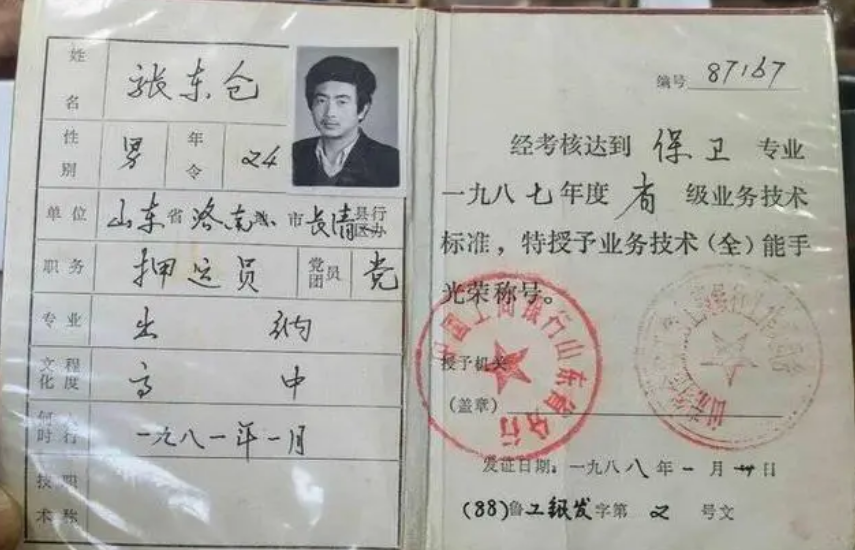 姓名 张东仓
性别 男 年令 24
单位 山东省济南 市长清县行区办
职务 押运员 党团员 党
专业 出纳
文化程度 高中
何时入行 一九八一年一月
技术职称
编号 87167
经考核达到 保卫 专业
一九八七年度 省 级业务技术
标准，特授予业务技术(全)能手
光荣称号。
授予机关
(盖章)
中国工商银行山东省分行
发证日期：一九八八年一月 日
(88)鲁工银发字第 2 号文